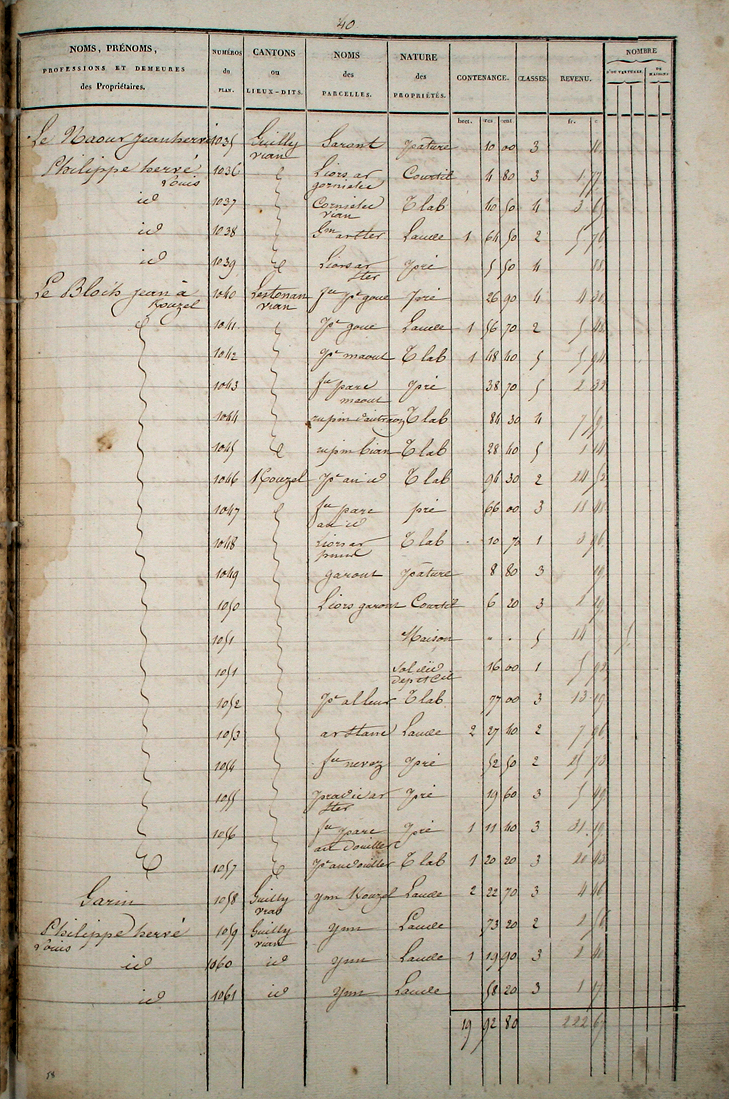 40
NOMS, PRÉNOMS, PROFESSIONS ET DEMEURES des Propriétaires.
NUMÉROS du PLAN.
CANTONS ou LIEUX-DITS.
NOMS des PARCELLES.
NATURE des PROPRIÉTÉS.
CONTENANCE.
CLASSES.
REVENU.
NOMBRE
D'OUVERTURES.
DE MAISONS
hect. ares cent. fr. c.
Le Naour jean hervé 1035 Guilly vian Garont pature 10 00 3
Philippe hervé Louis 1036 Liors ar Courtil 4 80 3 1 77
id 1037 vian T lab 40 50 4 3 65
id 1038 ar ster Lande 1 64 50 2 5 76
id 1039 Liors ar ster pré 5 50 4 88
Le Bloïs jean à Kouzel 1040 Lestonan vian fu pc goue pré 26 90 4 4 30
1041 pc goue Lande 1 56 70 2 5 48
1042 pc maout T lab 1 48 40 5 5 94
1043 fu parc maout pré 38 70 5 2 32
1044 T lab 84 30 4 7 59
1045 bian T lab 28 40 5 1 14
1046 Kouzel pc an id T lab 94 30 2 24 52
1047 fu parc an id pré 66 00 3 11 40
1048 Liors ar T lab 10 70 1 3 96
1049 garont pature 8 80 3 19
1050 Liors garont Courtil 6 20 3 2 29
1051 Maison " " 5 14
1051 Sol du dépt et Cil 16 00 1 5 92
1052 pc al leur T lab 77 00 3 13 19
1053 ar stanc Lande 2 27 40 2 7 96
1054 fu nevez pré 52 50 2 15 73
1055 pradic ar ster pré 19 60 3 5 49
1056 fu parc an douillet pré 1 11 40 3 31 19
1057 pc an douillet T lab 1 20 20 3 20 43
Garin 1058 Guilly vras yun Kouzel Lande 2 22 70 3 4 46
Philippe hervé Louis 1059 Guilly vian yun Lande 73 20 2 2 56
id 1060 id yun Lande 1 19 90 3 2 40
id 1061 id yun Lande 58 20 3 1 17
19 92 80 222 67
58